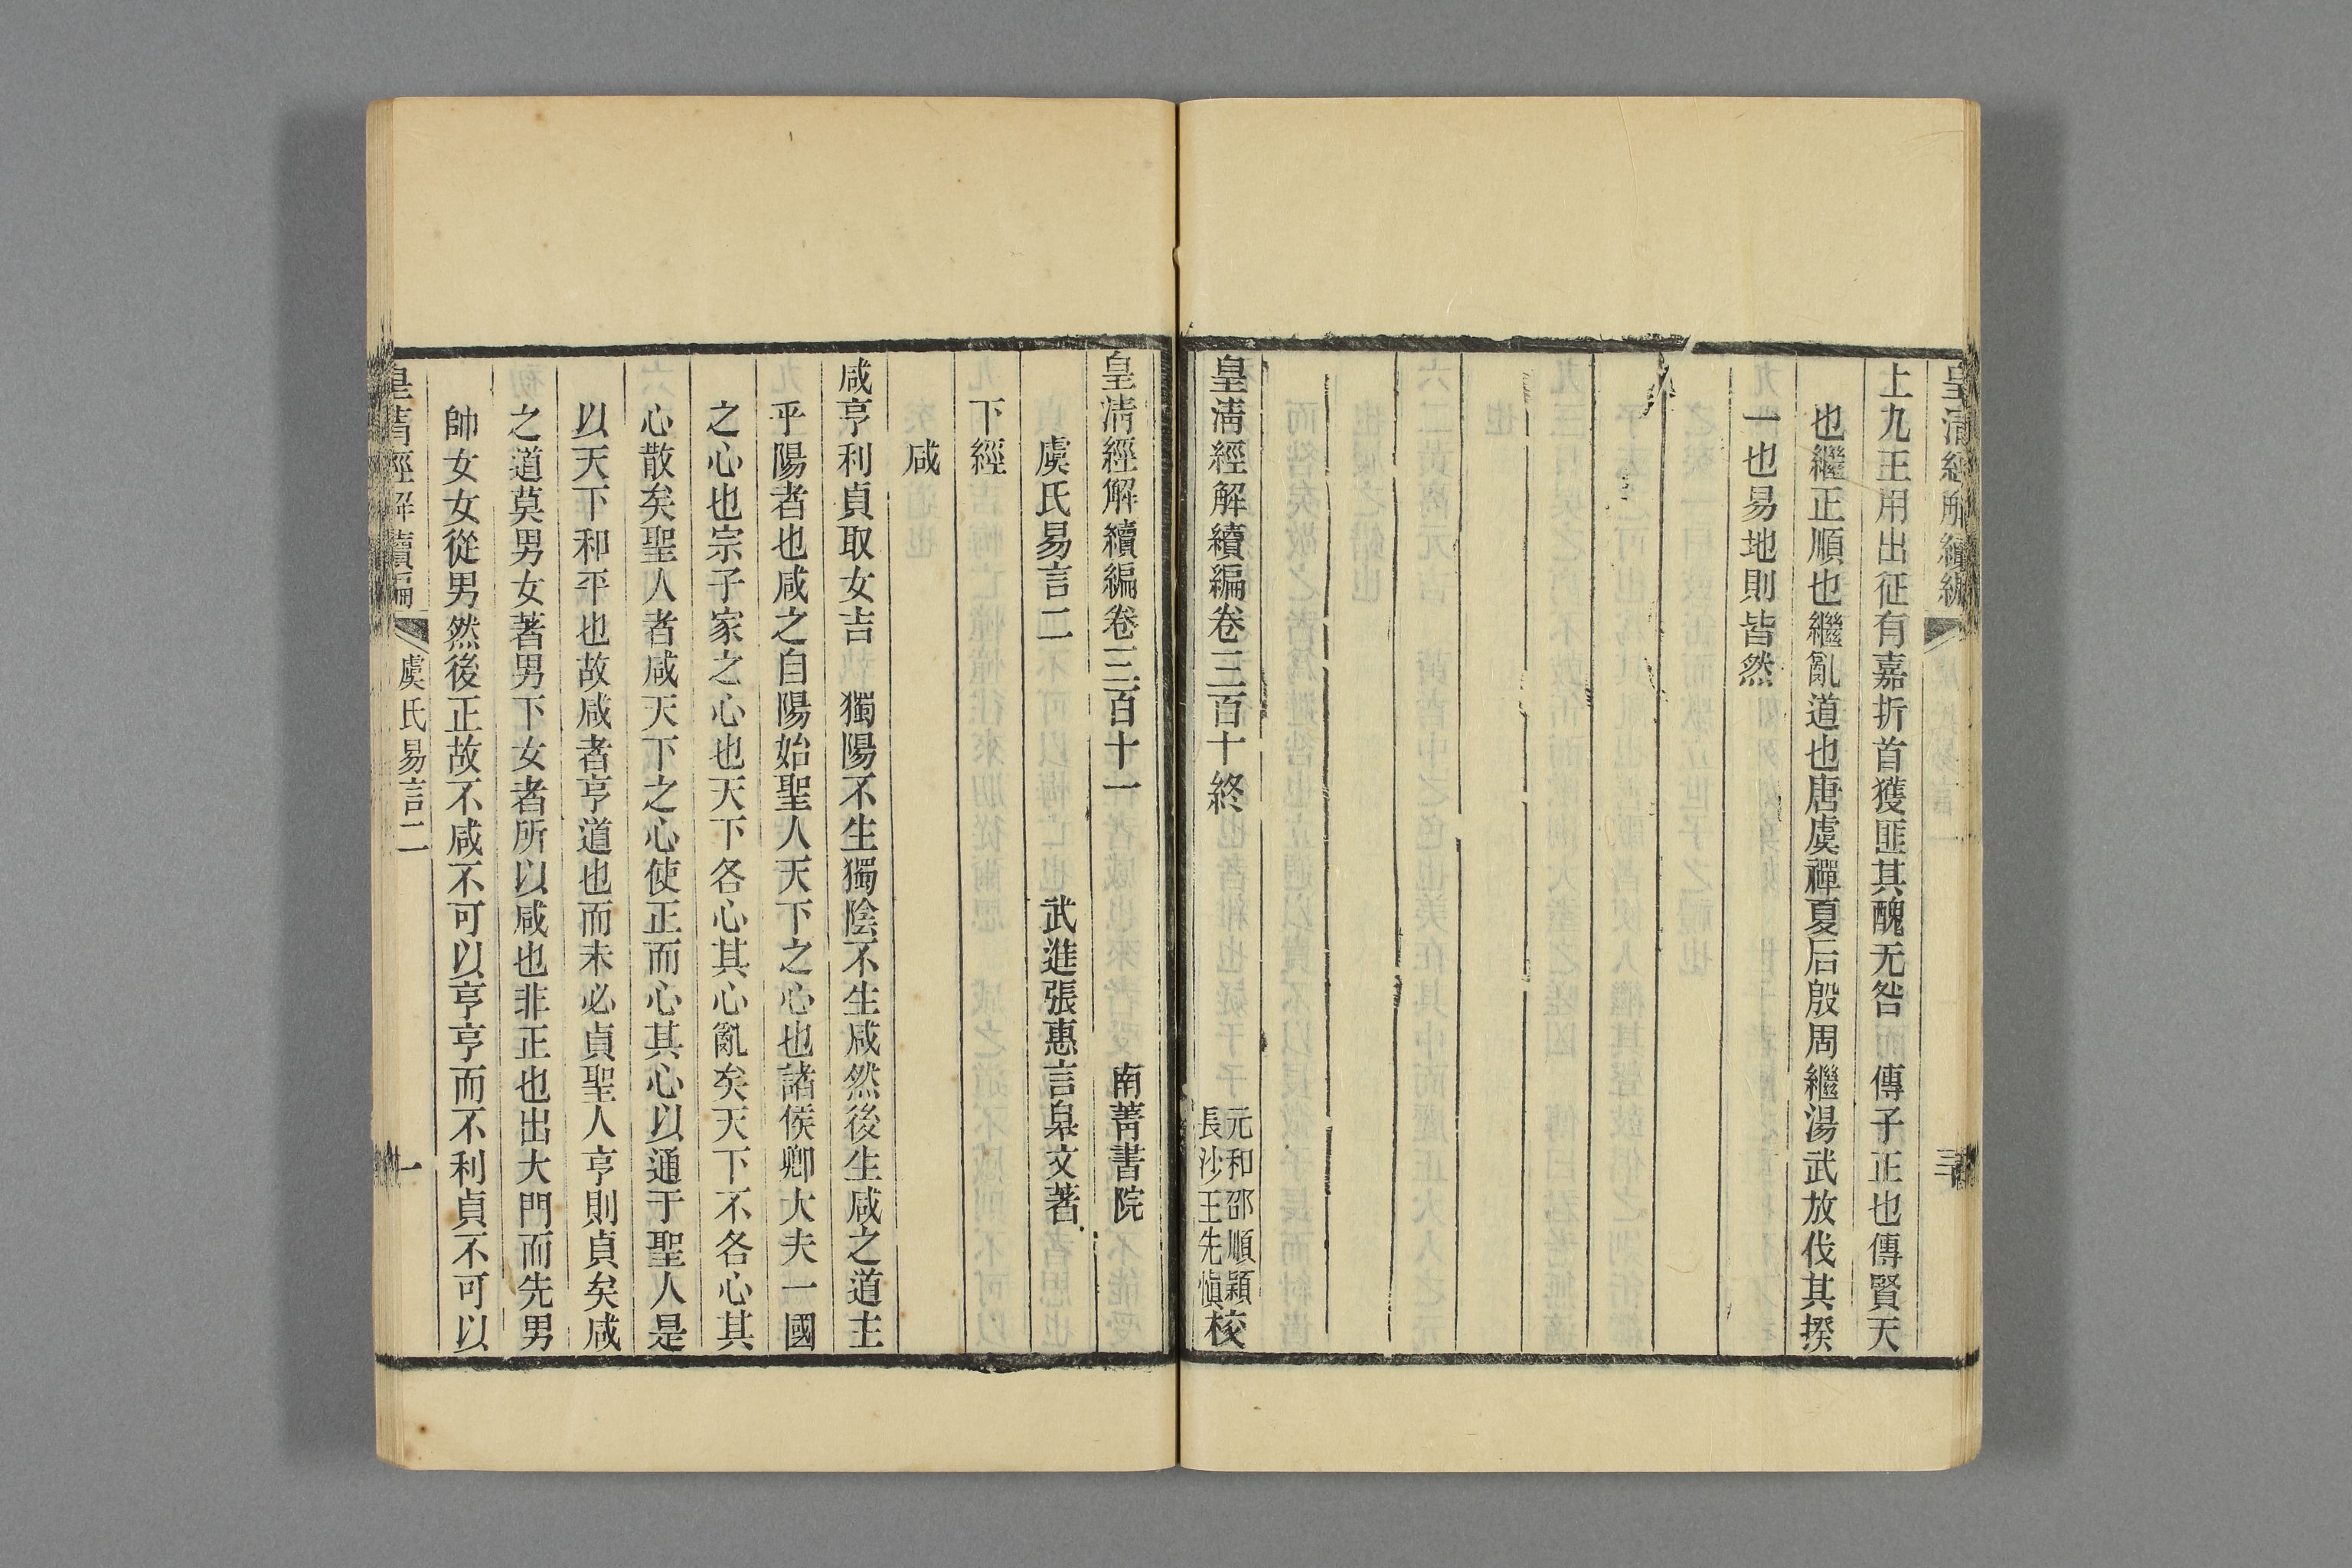 皇清經解續編
三
上九王用出征有嘉折首獲匪其醜无咎　傳子正也傳賢天
也繼正順也繼亂道也唐虞禪夏后殷周繼湯武放伐其揆
一也易地則皆然
皇清經解續編卷三百十終
元和邵順穎
長沙王先慎
校
皇清經解續編卷三百十一
南菁書院
虞氏易言二
武進張惠言皋文著
下經
咸
咸亨利貞取女吉　獨陽不生獨陰不生咸然後生咸之道主
乎陽者也咸之自陽始聖人天下之心也諸侯卿大夫一國
之心也宗子家之心也天下各心其心亂矣天下不各心其
心散矣聖人者咸天下之心使正而心其心以通于聖人是
以天下和平也故咸者亨道也而未必貞聖人亨則貞矣咸
之道莫男女著男下女者所以咸也非正也出大門而先男
帥女女從男然後正故不咸不可以亨亨而不利貞不可以
皇清經解續編
虞氏易言二
一